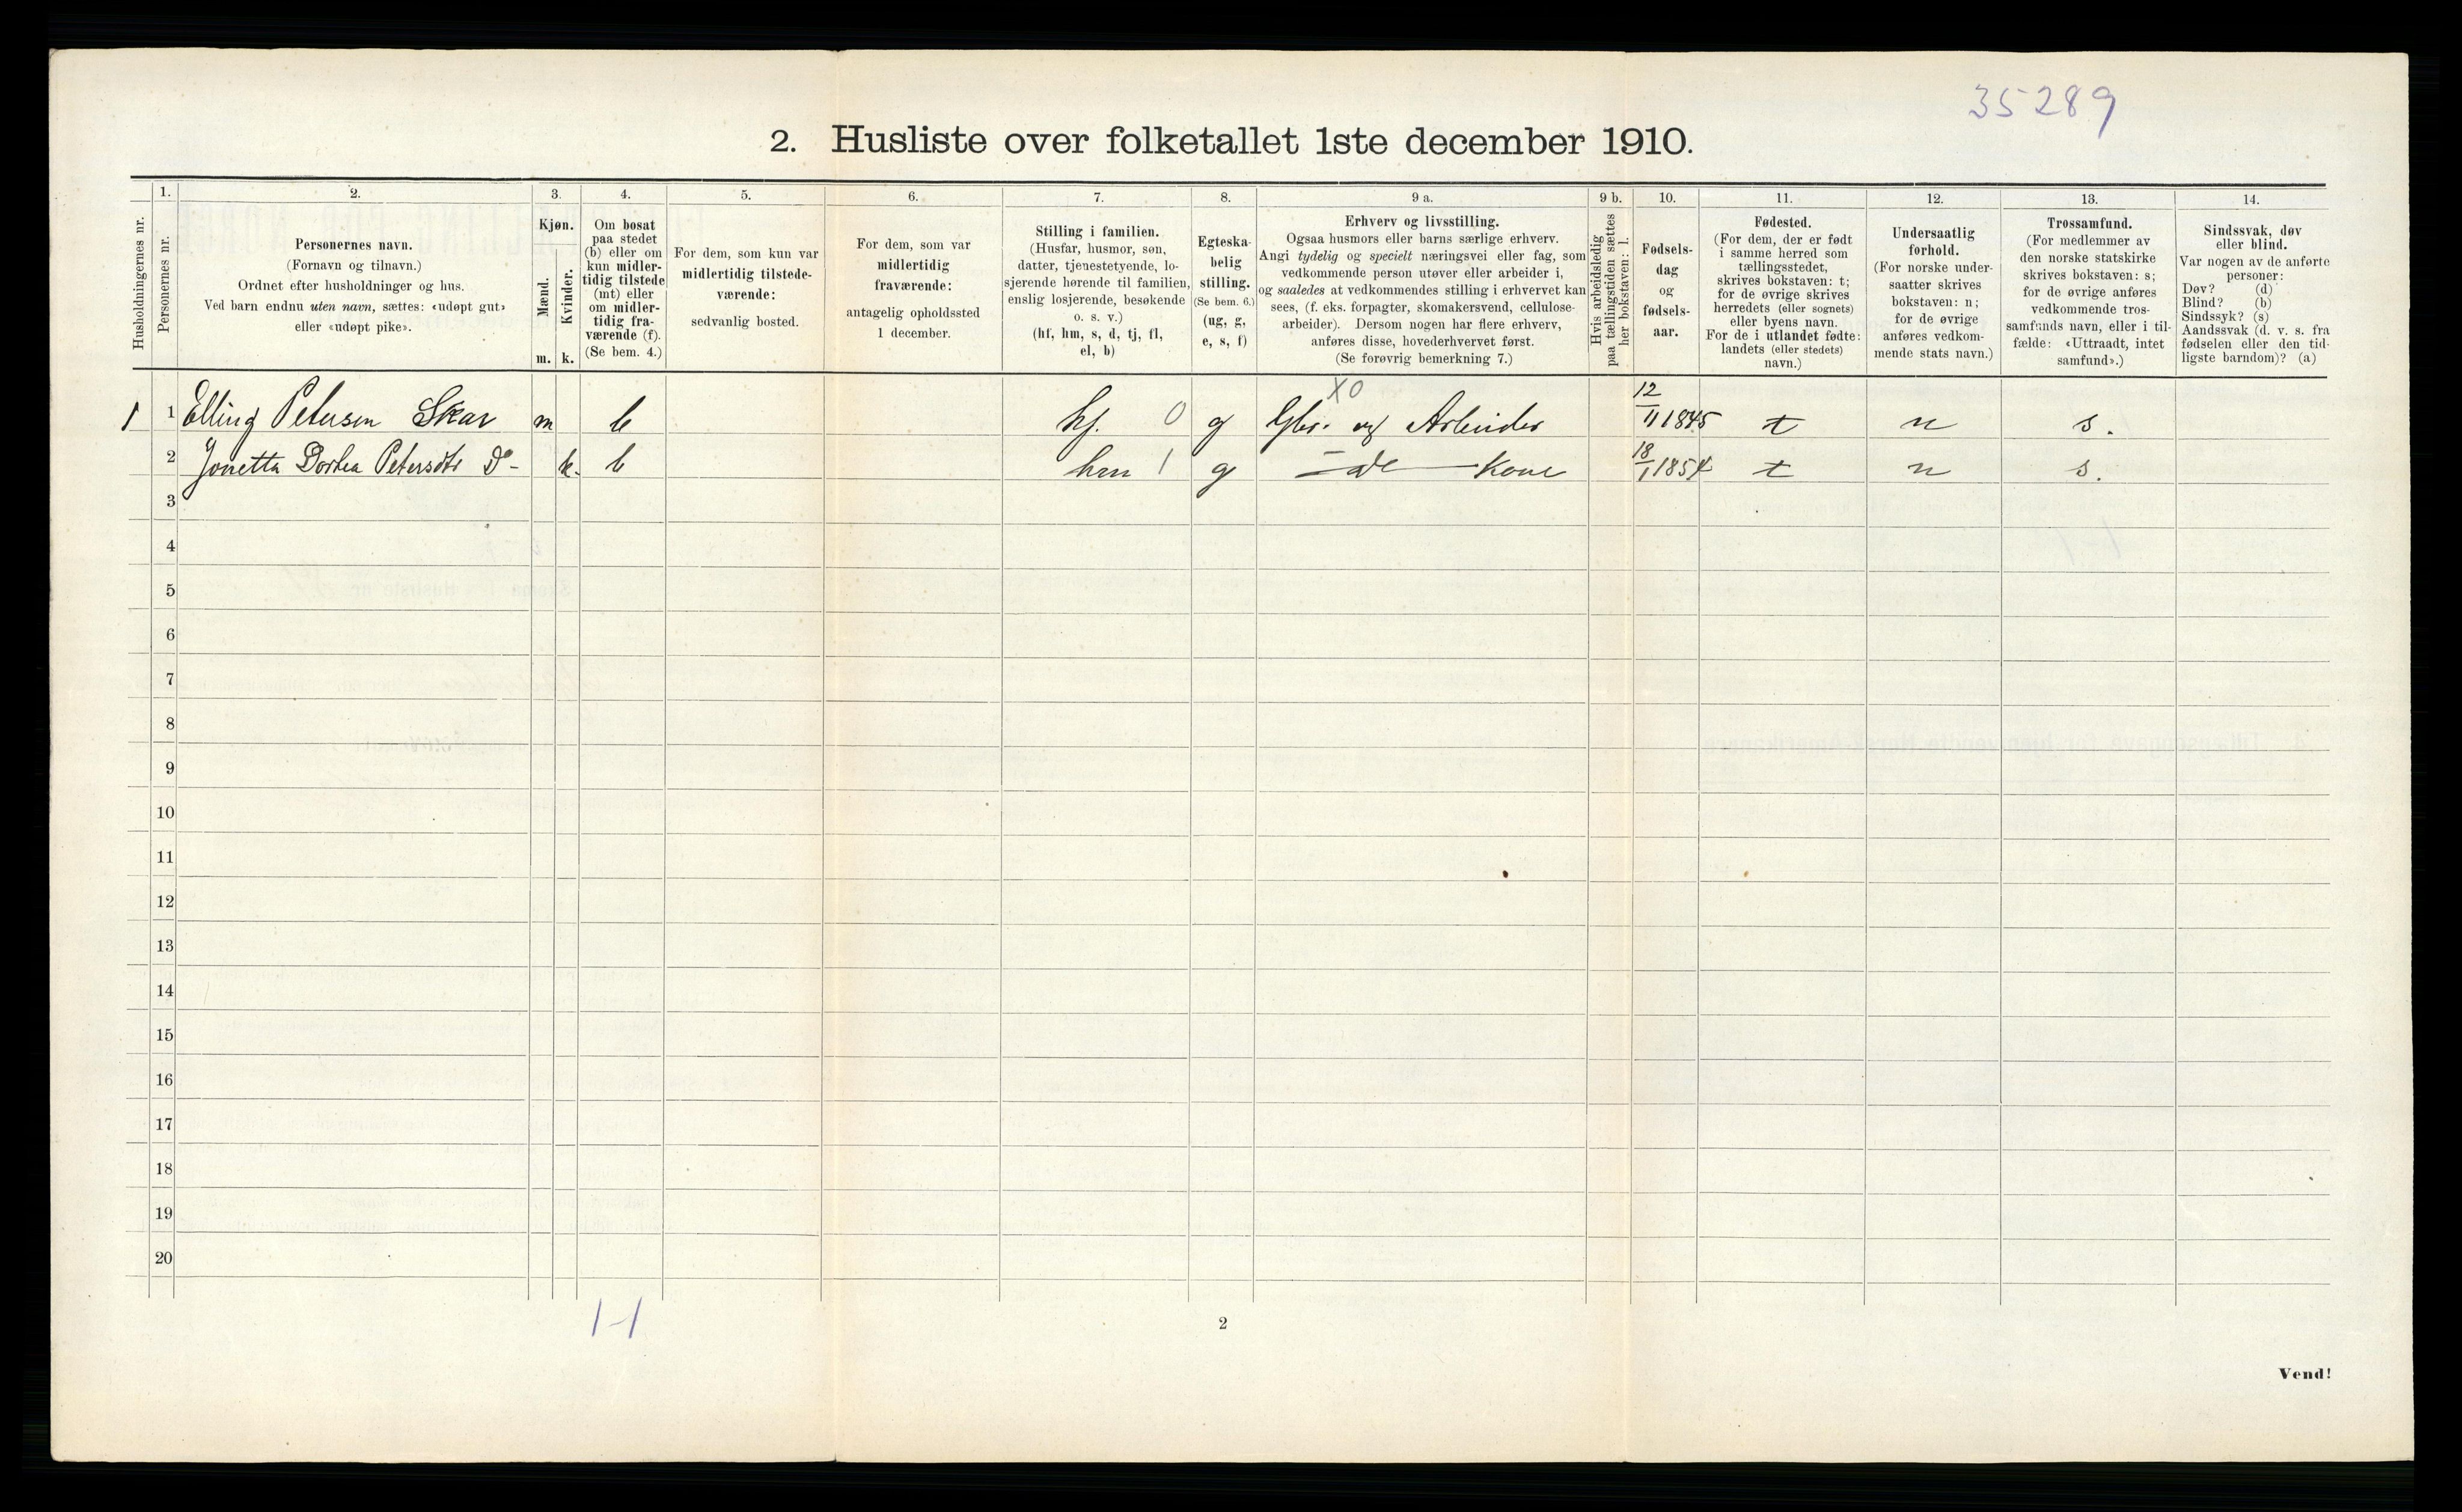 35289
2. Husliste over folketallet 1ste december 1910.
Husholdningernes nr.
1.
Personernes nr.
2.
Personernes navn.
(Fornavn og tilnavn.)
Ordnet efter husholdninger og hus.
Ved barn endnu uten navn, sættes: «udøpt gut»
eller «udøpt pike».
3.
Kjøn.
Mænd.
Kvinder.
m. k.
4.
Om bosat
paa stedet
(b) eller om
kun midler-
tidig tilstede
(mt) eller
om midler-
tidig fra-
værende (f).
(Se bem. 4.)
5.
For dem, som kun var
midlertidig tilstede-
værende:
sedvanlig bosted.
6.
For dem, som var
midlertidig
fraværende:
antagelig opholdssted
1 december.
7.
Stilling i familien.
(Husfar, husmor, søn,
datter, tjenestetyende, lo-
sjerende hørende til familien,
enslig losjerende, besøkende
o. s. v.)
(hf, hm, s, d, tj, fl,
el, b)
8.
Egteska-
belig
stilling.
(Se bem. 6.)
(ug, g,
e, s, f)
9 a.
Erhverv og livsstilling.
Ogsaa husmors eller barns særlige erhverv.
Angi tydelig og specielt næringsvei eller fag, som
vedkommende person utøver eller arbeider i,
og saaledes at vedkommendes stilling i erhvervet kan
sees, (f. eks. forpagter, skomakersvend, cellulose-
arbeider). Dersom nogen har flere erhverv,
anføres disse, hovederhvervet først.
(Se forøvrig bemerkning 7.)
9 b.
Hvis arbeidsledig
paa tællingstiden sættes
her bokstaven: l.
10.
Fødsels-
dag
og
fødsels-
aar.
11.
Fødested.
(For dem, der er født
i samme herred som
tællingsstedet,
skrives bokstaven: t;
for de øvrige skrives
herredets (eller sognets)
eller byens navn.
For de i utlandet fødte:
landets (eller stedets)
navn.)
12.
Undersaatlig
forhold.
(For norske under-
saatter skrives
bokstaven: n;
for de øvrige
anføres vedkom-
mende stats navn.)
13.
Trossamfund.
(For medlemmer av
den norske statskirke
skrives bokstaven: s;
for de øvrige anføres
vedkommende tros-
samfunds navn, eller i til-
fælde: «Uttraadt, intet
samfund».)
14.
Sindssvak, døv
eller blind.
Var nogen av de anførte
personer:
Døv? (d)
Blind? (b)
Sindssyk? (s)
Aandssvak (d. v. s. fra
fødselen eller den tid-
ligste barndom)? (a)
X0
1 1 Elling Petersen Skar m b hf. 0 g Gbr. og Arbeider 12/11 1845 t n s.
2 Jonetta Dortea Petersdtr Do- k. b hm 1 g - do - Kone 18/1 1854 t n s.
3
4
5
6
7
8
9
10
11
12
13
14
15
16
17
18
19
20
1-1
2
Vend!